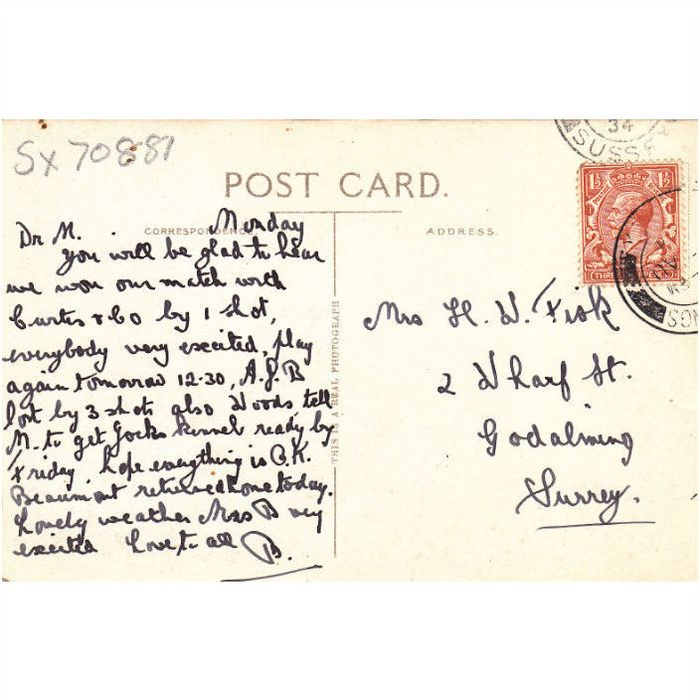 SX 70881
34
SUSSE
POST CARD.
CORRESPONDENCE
ADDRESS.
Monday
Dr M.
you will be glad to hear
we won our match with
Curtis & Co by 1 shot,
everybody very excited, play
again tomorrow 12-30, A.J.B
lost by 3 shots also Woods tell
M. to get Jocks kennel ready by
Friday hope everything is O.K.
Beaumont returned home today.
Lovely weather Mrs B very
excited Love to all B.
THIS IS A REAL PHOTOGRAPH
1½ 1½
Mrs H. W. Fisk
2 Wharf St.
Godalming
Surrey.
NGS